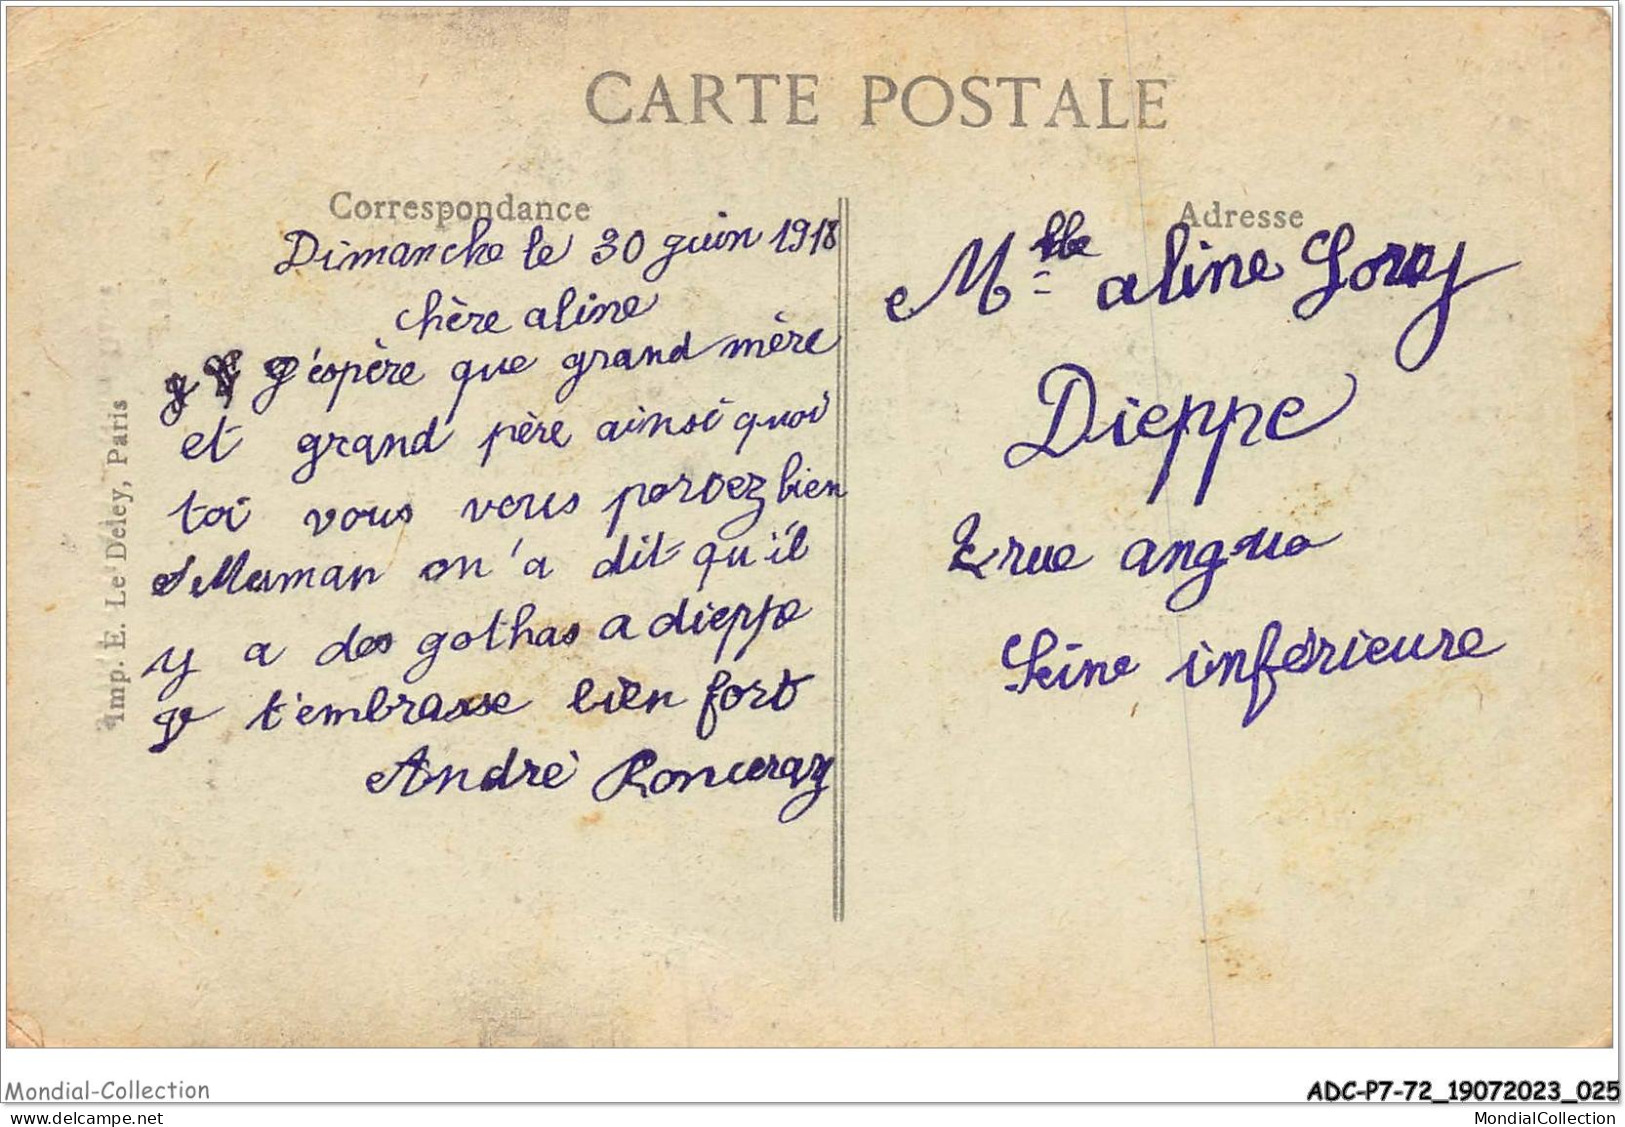 CARTE POSTALE
Correspondance
Dimanche le 30 juin 1918
chère aline
j'éspère que grand mère
et grand père ainsi quoi
toi vous vous portez bien
Maman on'a dit qu'il
y a des gothas a dieppe
je t'embrasse bien fort
André Ronceray
Imp. E. Le Deley, Paris
Adresse
Mlle aline Lorey
Dieppe
rue ango
Seine inférieure
Mondial-Collection
ADC-P7-72_19072023_025
delcampe.net
MondialCollection